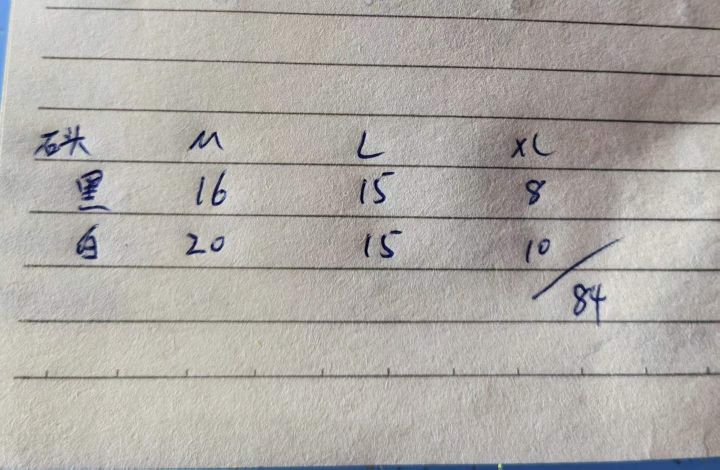 石头 M L XL
黑 16 15 8
白 20 15 10
84